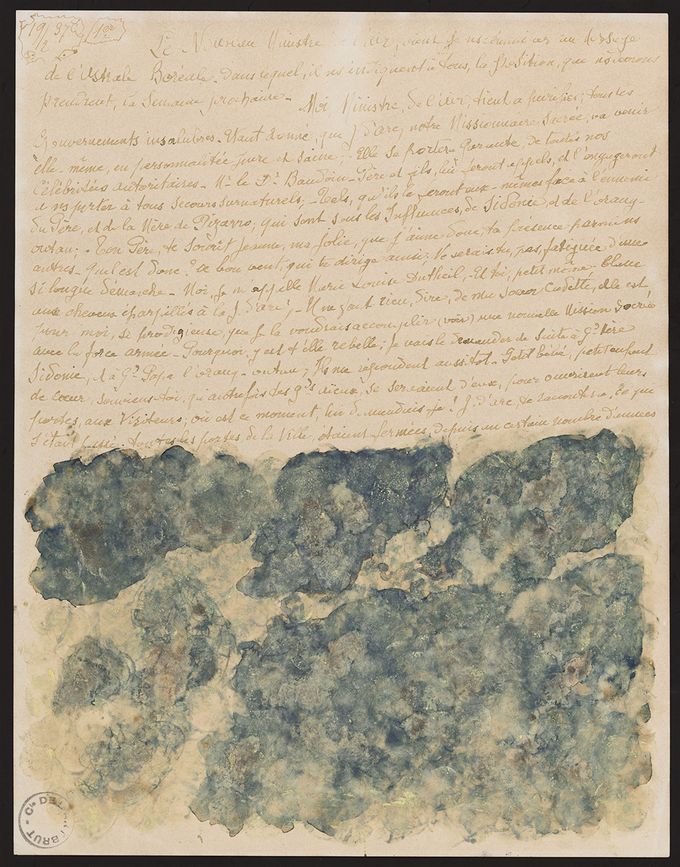 19/2 37 1er
Le Ministre de l'air, vient
de l'Astrale Boréale, dans lequel, il ns indiquent à tous, la Position, que ns devons
prendrent, la Semaine prochaine - Moi Ministre, de l'air, tient a purifier, tous les
Gouvernements insalubres. Etant donné, que J d'arc, notre Missionnaire Sacrée, va venir
elle-même, en personnalitée, pure et saine; Elle se porter Garante, de toutes nos
Célébritées autoritaires - Mr le Dr Baudouin - Père et fils, lui feront appels, et l'engageront
a ns porter à tous Secours surnaturels, - tels, qu'ils le feront eux-mêmes face à l'ennemie
du Père, et de la Mère de Pizarro, qui sont sous les Influences, de Sidonie, et de l'orang-
outan; - Bon Père, te Sourit Jeanne, ma jolie, que j'aime donc, ta présence parmi ns
autres - qu'est donc? le bon vent, qui te dirige ainsi; te serais tu, pas, fatiguée d'une
si longue démarche - Moi, Je m'appelle Marie Louise Dutheil, Et toi, petit môme, blanc
aux cheveux éparpillés à la J. d'arc; - Il ne faut rien, dire, de ma Soeur Cadette, elle est
pour moi, si prodigieuse, que je la voudrais accomplir (voir) une nouvelle Mission Sacrée
avec la force armée - Pourquoi, y est-elle rebelle; je vais le demander de Suite à Gd Mère
Sidonie, et à Gd Papa l'orang-outan; Ils ne répondent aussitot - Petit bébé, petit enfant
de Coeur, Souviens toi, qu'autrefois tes gds aieux, se servaient d'eux, pour ouvrirent leurs
portes, aux Visiteurs; où est ce moment, lui demandais-je! J. d'arc te raconter a, Ce que
s'était passé - toutes les portes de la Ville, étaient fermées, depuis un certain nombre d'années
Cie DE L'ART BRUT